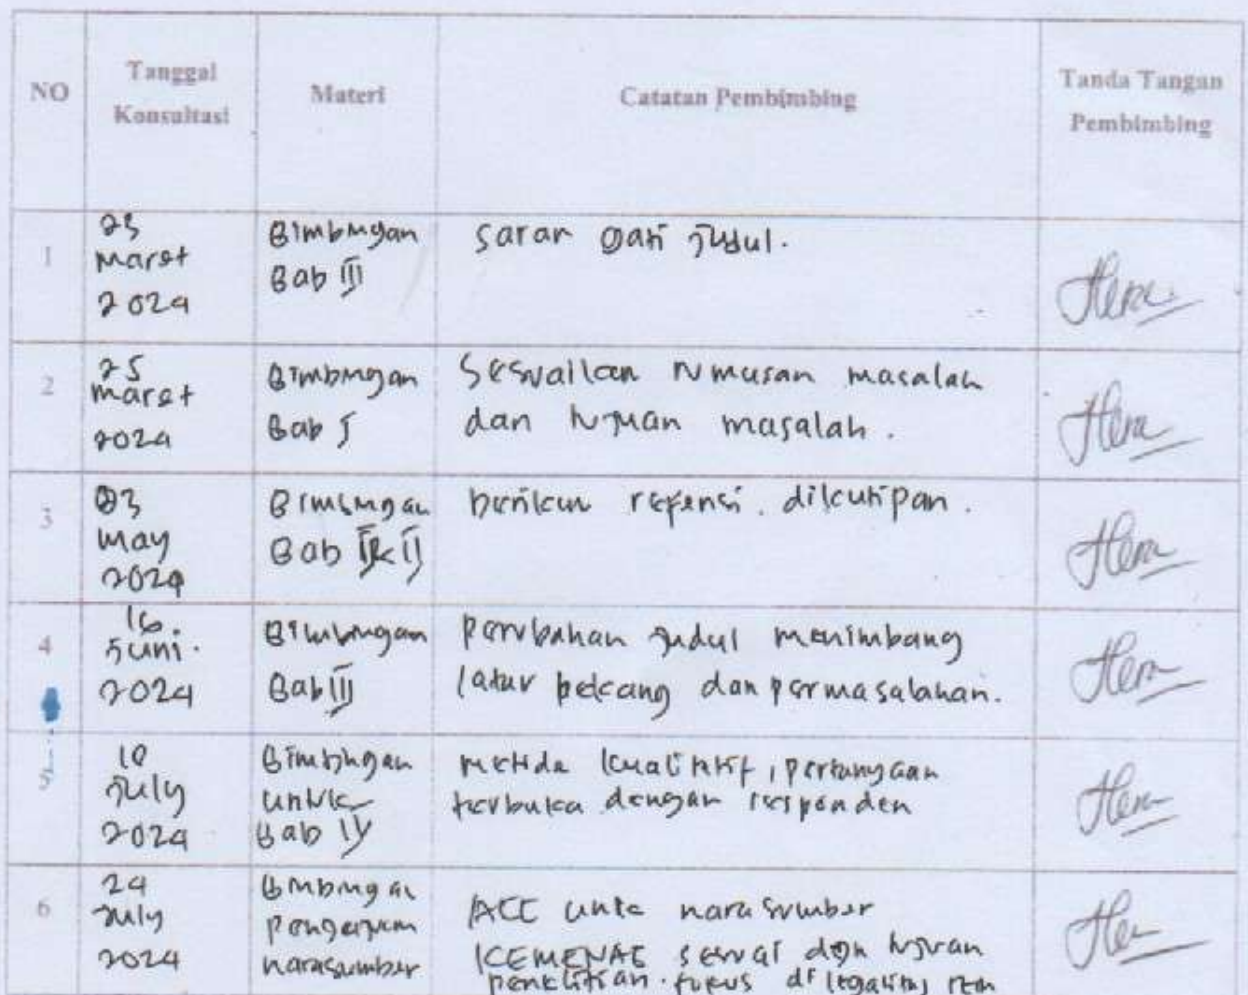 NO
Tanggal
Konsultasi
Materi
Catatan Pembimbing
Tanda Tangan
Pembimbing
1
maret
2024
Bimbingan
Bab III
saran ganti judul.
Hera
2
25
maret
2024
Bimbingan
Bab I
Sesuaikan rumusan masalah
dan tujuan masalah.
Hera
3
03
may
2024
Bimbingan
Bab II
berikan refensi. dikutipan.
Hera
4
16.
Juni.
2024
Bimbingan
Bab III
perubahan judul menimbang
latar belakang dan permasalahan.
Hera
5
10
July
2024
Bimbingan
untuk
Bab IV
metode kualitatif, pertanyaan
terbuka dengan responden
Hera
6
24
July
2024
Bimbingan
narasumber
ACC untk narasumber
KEMENAG sesuai dgn tujuan
penelitian. fokus di
Hera